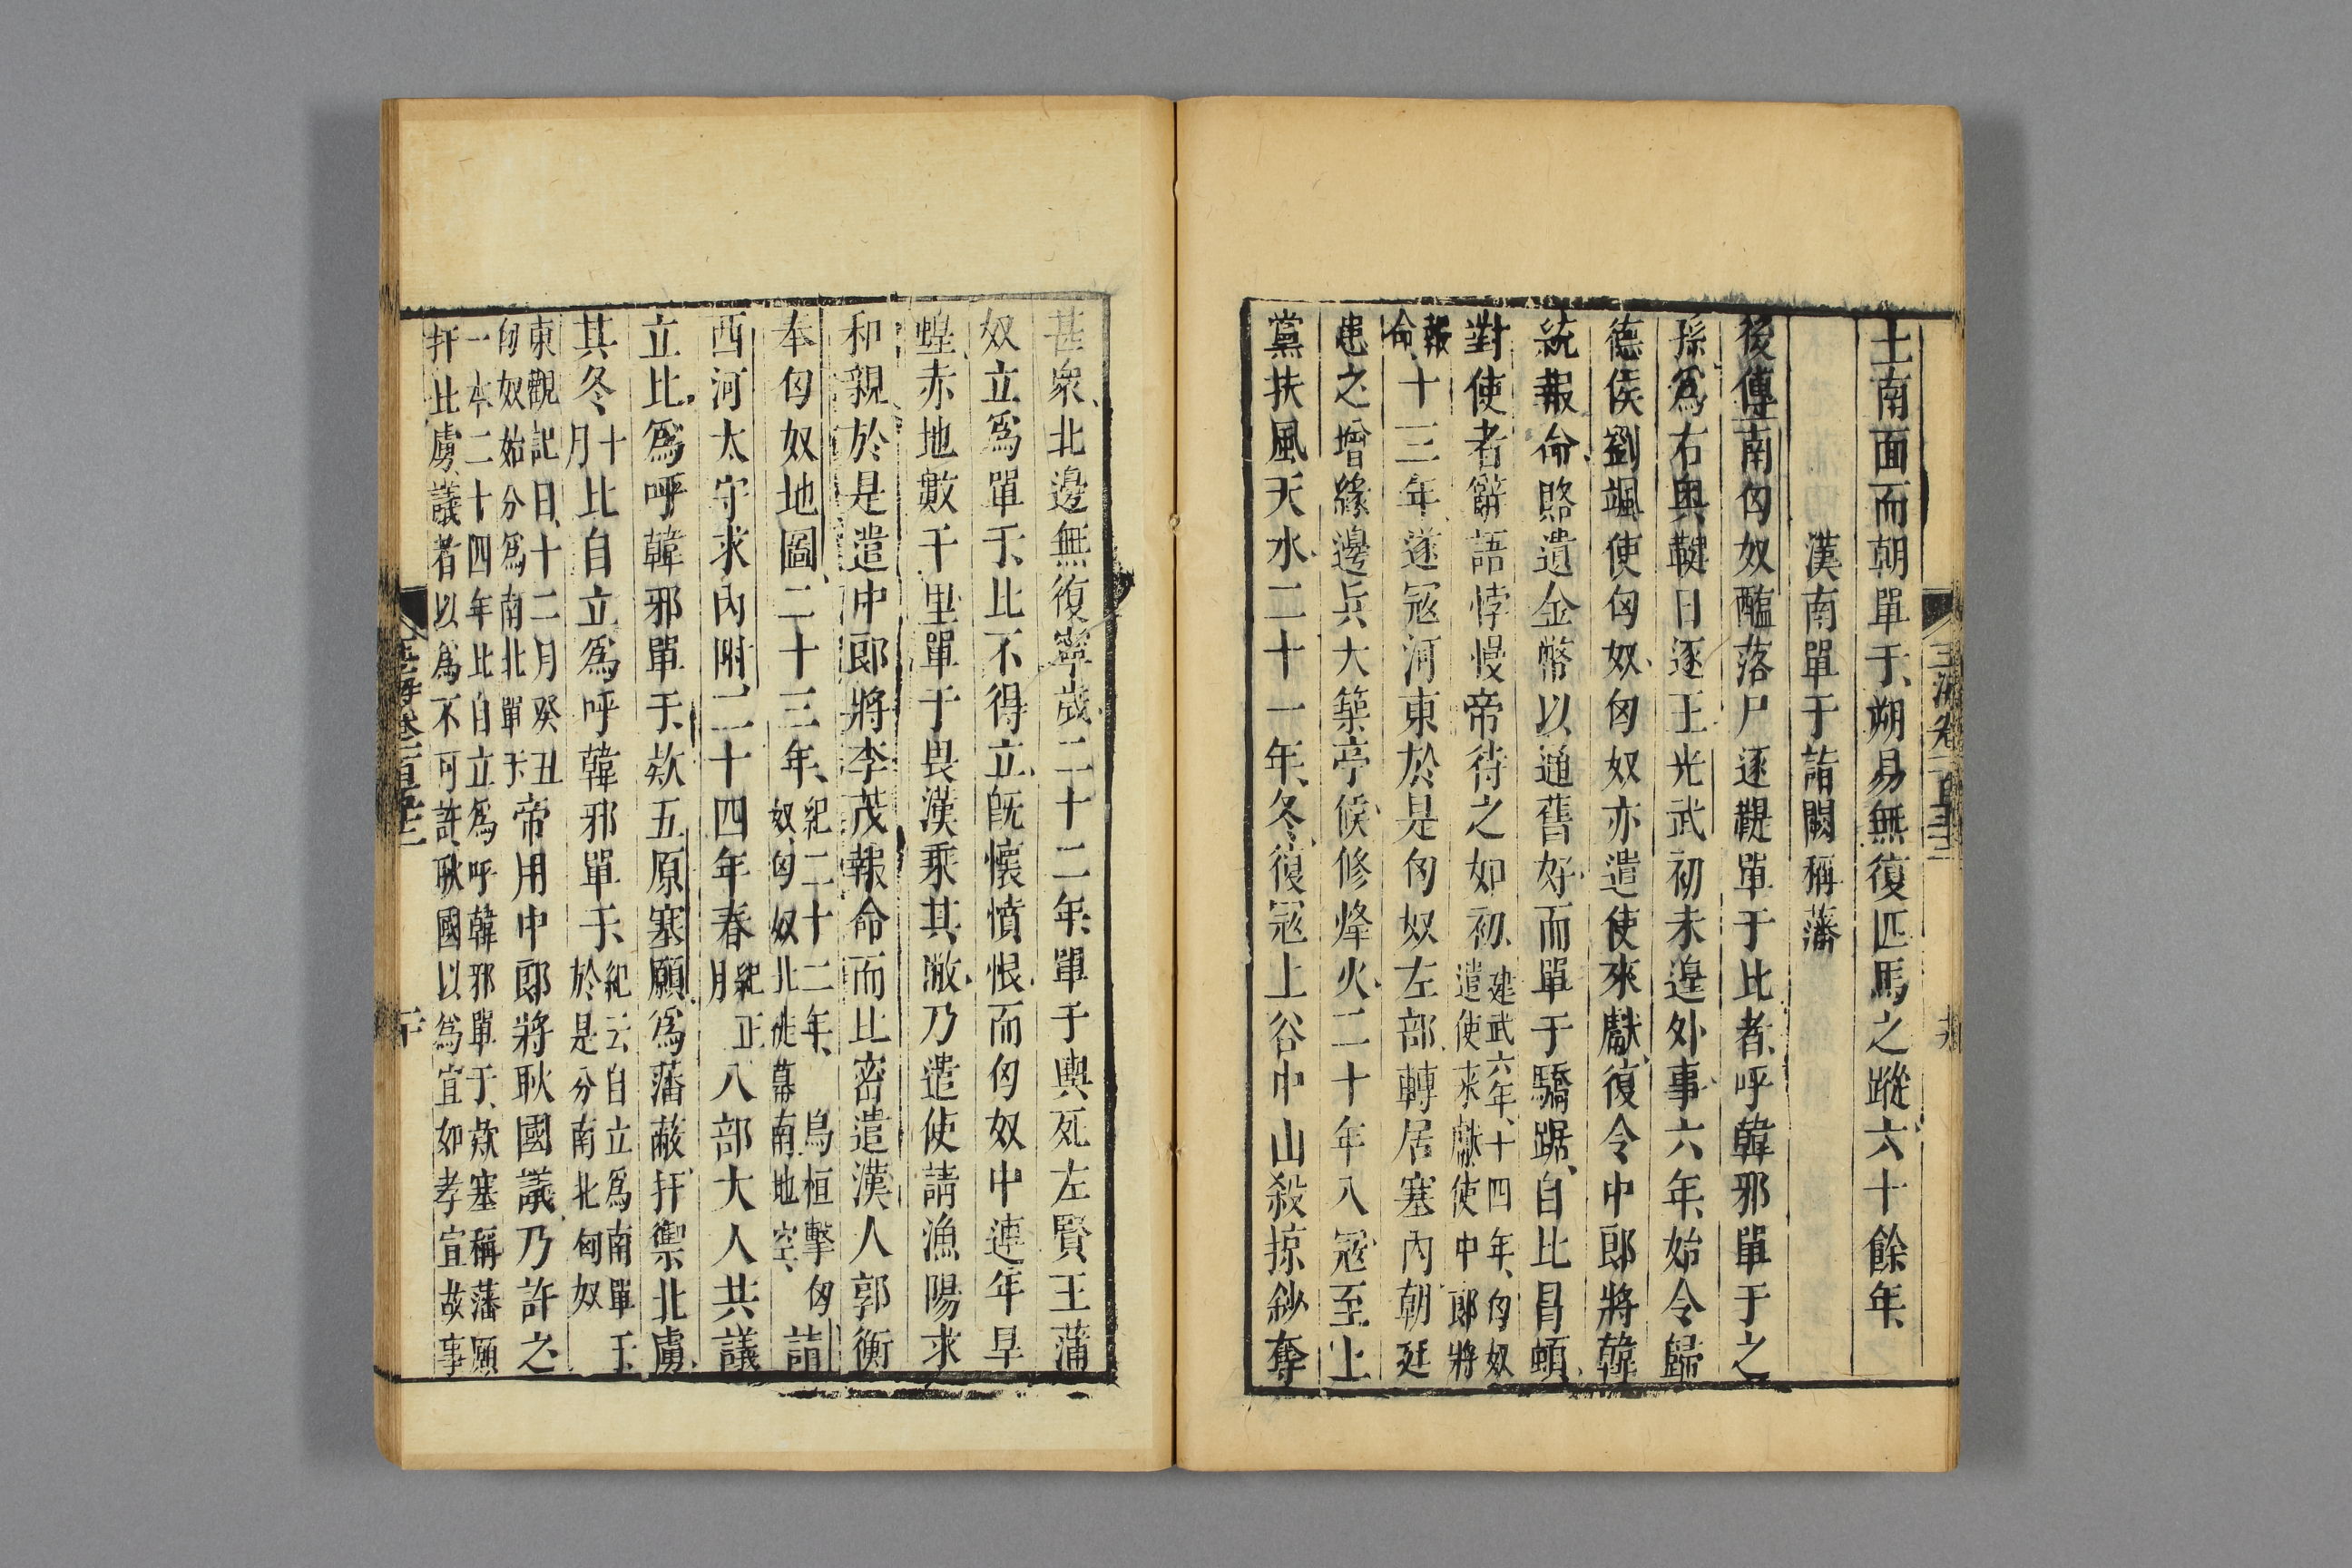 土南面而朝單于、朔易無復匹馬之蹤、六十餘年、
漢南單于詣闕稱藩
後傳南匈奴醢落尸逐鞮單于比者、呼韓邪單于之
孫、爲右薁鞬日逐王光武初未遑外事六年、始令歸
德侯劉颯使匈奴、匈奴亦遣使來獻、復令中郎將韓
統報命、賂遺金幣以通舊好、而單于驕踞、自比冒頓、
對使者辭語悖慢帝待之如初、建武六年、十四年、匈奴
遣使來獻使中郎將
報
命、十三年、遂寇河東於是匈奴左部、轉居塞內朝廷
患之增緣邊兵大築亭候、修烽火、二十年入寇至上
黨扶風天水、二十一年、冬、復寇上谷中山殺掠鈔奪
甚衆、北邊無復寧歲、二十二年、單于輿死左賢王蒲
奴立爲單于、比不得立、既懷憤恨、而匈奴中連年旱
蝗赤地數千里單于畏漢乘其敝、乃遣使請漁陽求
和親、於是遣中郎將李茂報命而比密遣漢人郭衡
奉匈奴地圖、二十三年、紀二十二年、烏桓擊匈
奴、匈奴北徙幕南地空、詣
西河太守求內附、二十四年春紀正
月八部大人共議
立比、爲呼韓邪單于、款五原塞願、爲藩蔽扞禦北虜、
其冬十
月比自立爲呼韓邪單于、紀云自立爲南單于、
於是分南北匈奴
東觀記曰、十二月癸丑
匈奴始分爲南北單于帝用中郎將耿國議、乃許之、
一本二十四年比自立爲呼韓邪單于、款塞稱藩願
扞北虜、議者以爲不可許、耿國以爲宜如孝宣故事